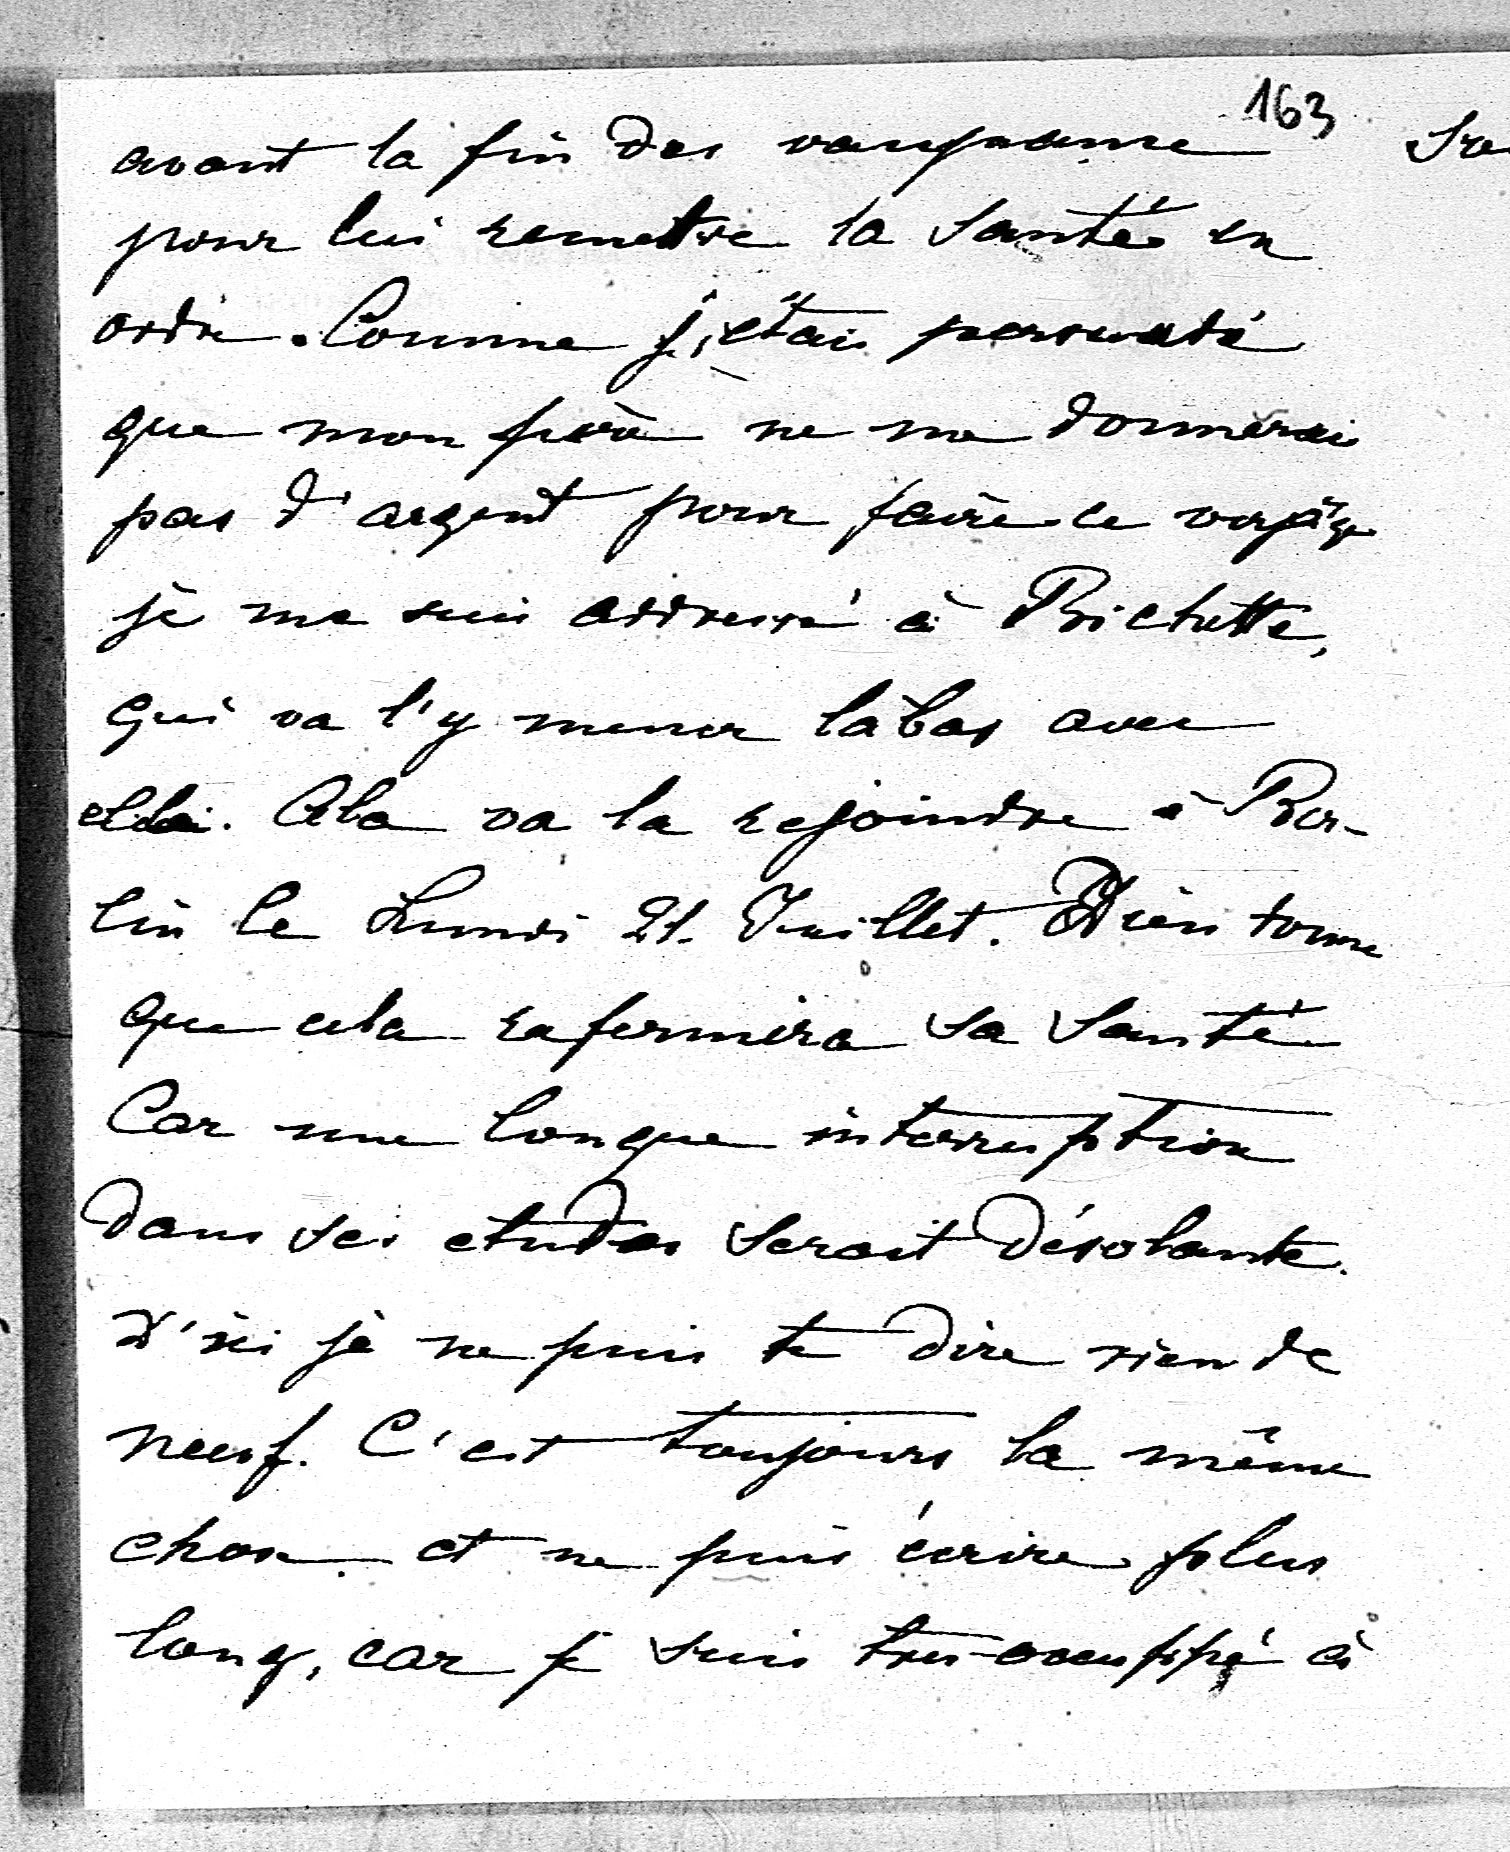 163
avant la fin des
pour lui remettre la santé en
ordre. Comme j'étais persuadé
que mon père ne me donnerai
pas d'argent pour faire ce voyage
je me suis addressé à Bichette,
qui va l'y mener làbas avec
elle. Cela va la rejoindre à Ber-
lin le Lundi 21. Juillet. Dieu
que cela rafermira sa santé
Car une longue interruption
dans ses etudes serait désolante.
D'ici je ne puis te dire rien de
neuf. C'est toujours la même
chose et ne puis écrire plus
long, car je suis très occuppé à